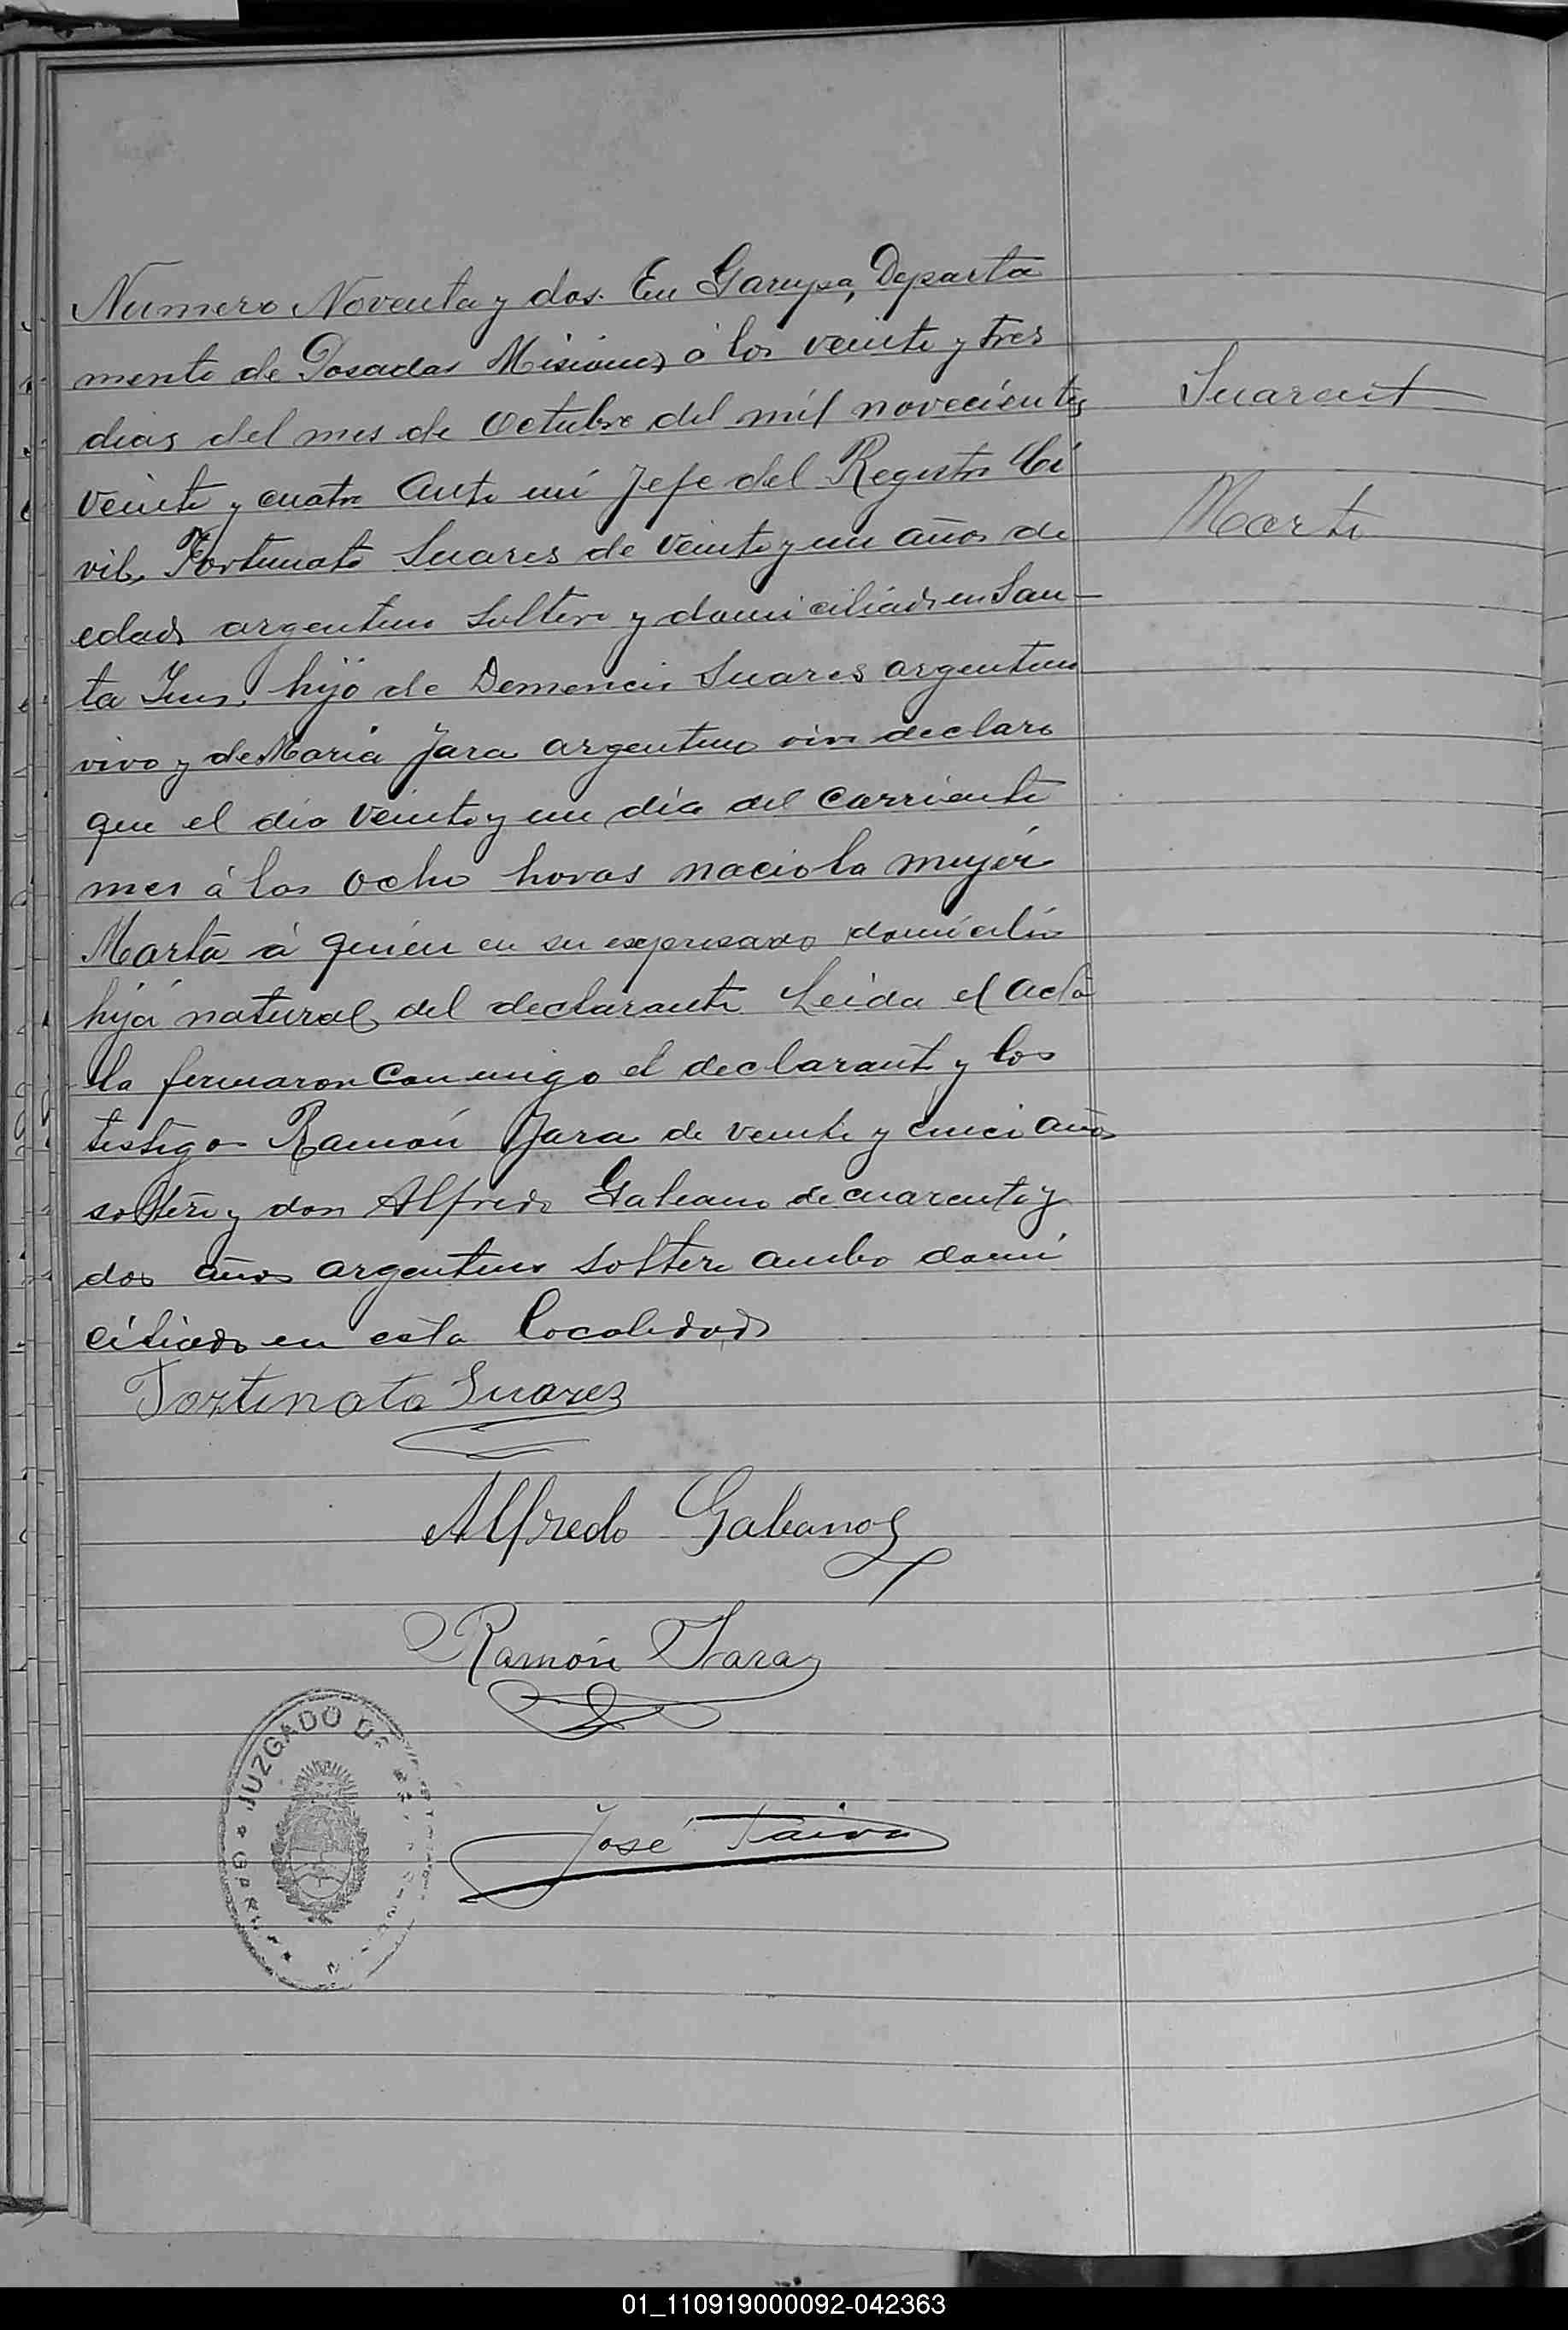 Numero Noventa y dos. En Garupa, Departa
mento de Posadas Misiones á los veinte y tres
dias del mes de Octubre del mil novecientos
veinte y cuatro ante mi Jefe del Registro Ci
vil, Fortunato Suares de veinte y un años de
edad argentino soltero y domiciliado en San-
ta Ines. hijo de Demencio Suares argentino
vivo y de Maria Jara argentino viva declaro
que el dia veinte y un dia del corriente
mes á las ocho horas nacio la mujer
Marta á quien en su expresado domicilio
hija natural del declarante Leida el acta
la firmaron conmigo el declarante y los
testigos Ramón Jara de veinte y cinco años
soltero y don Alfredo Galeano de cuarenta y
dos años argentino soltero ambo domi
ciliado en esta localidad
Suarez
Marta
Fortunato Suarez
Alfredo Galeano
Ramón Jara
José Paiva
JUZGADO DE
GARUPA
01_110919000092-042363